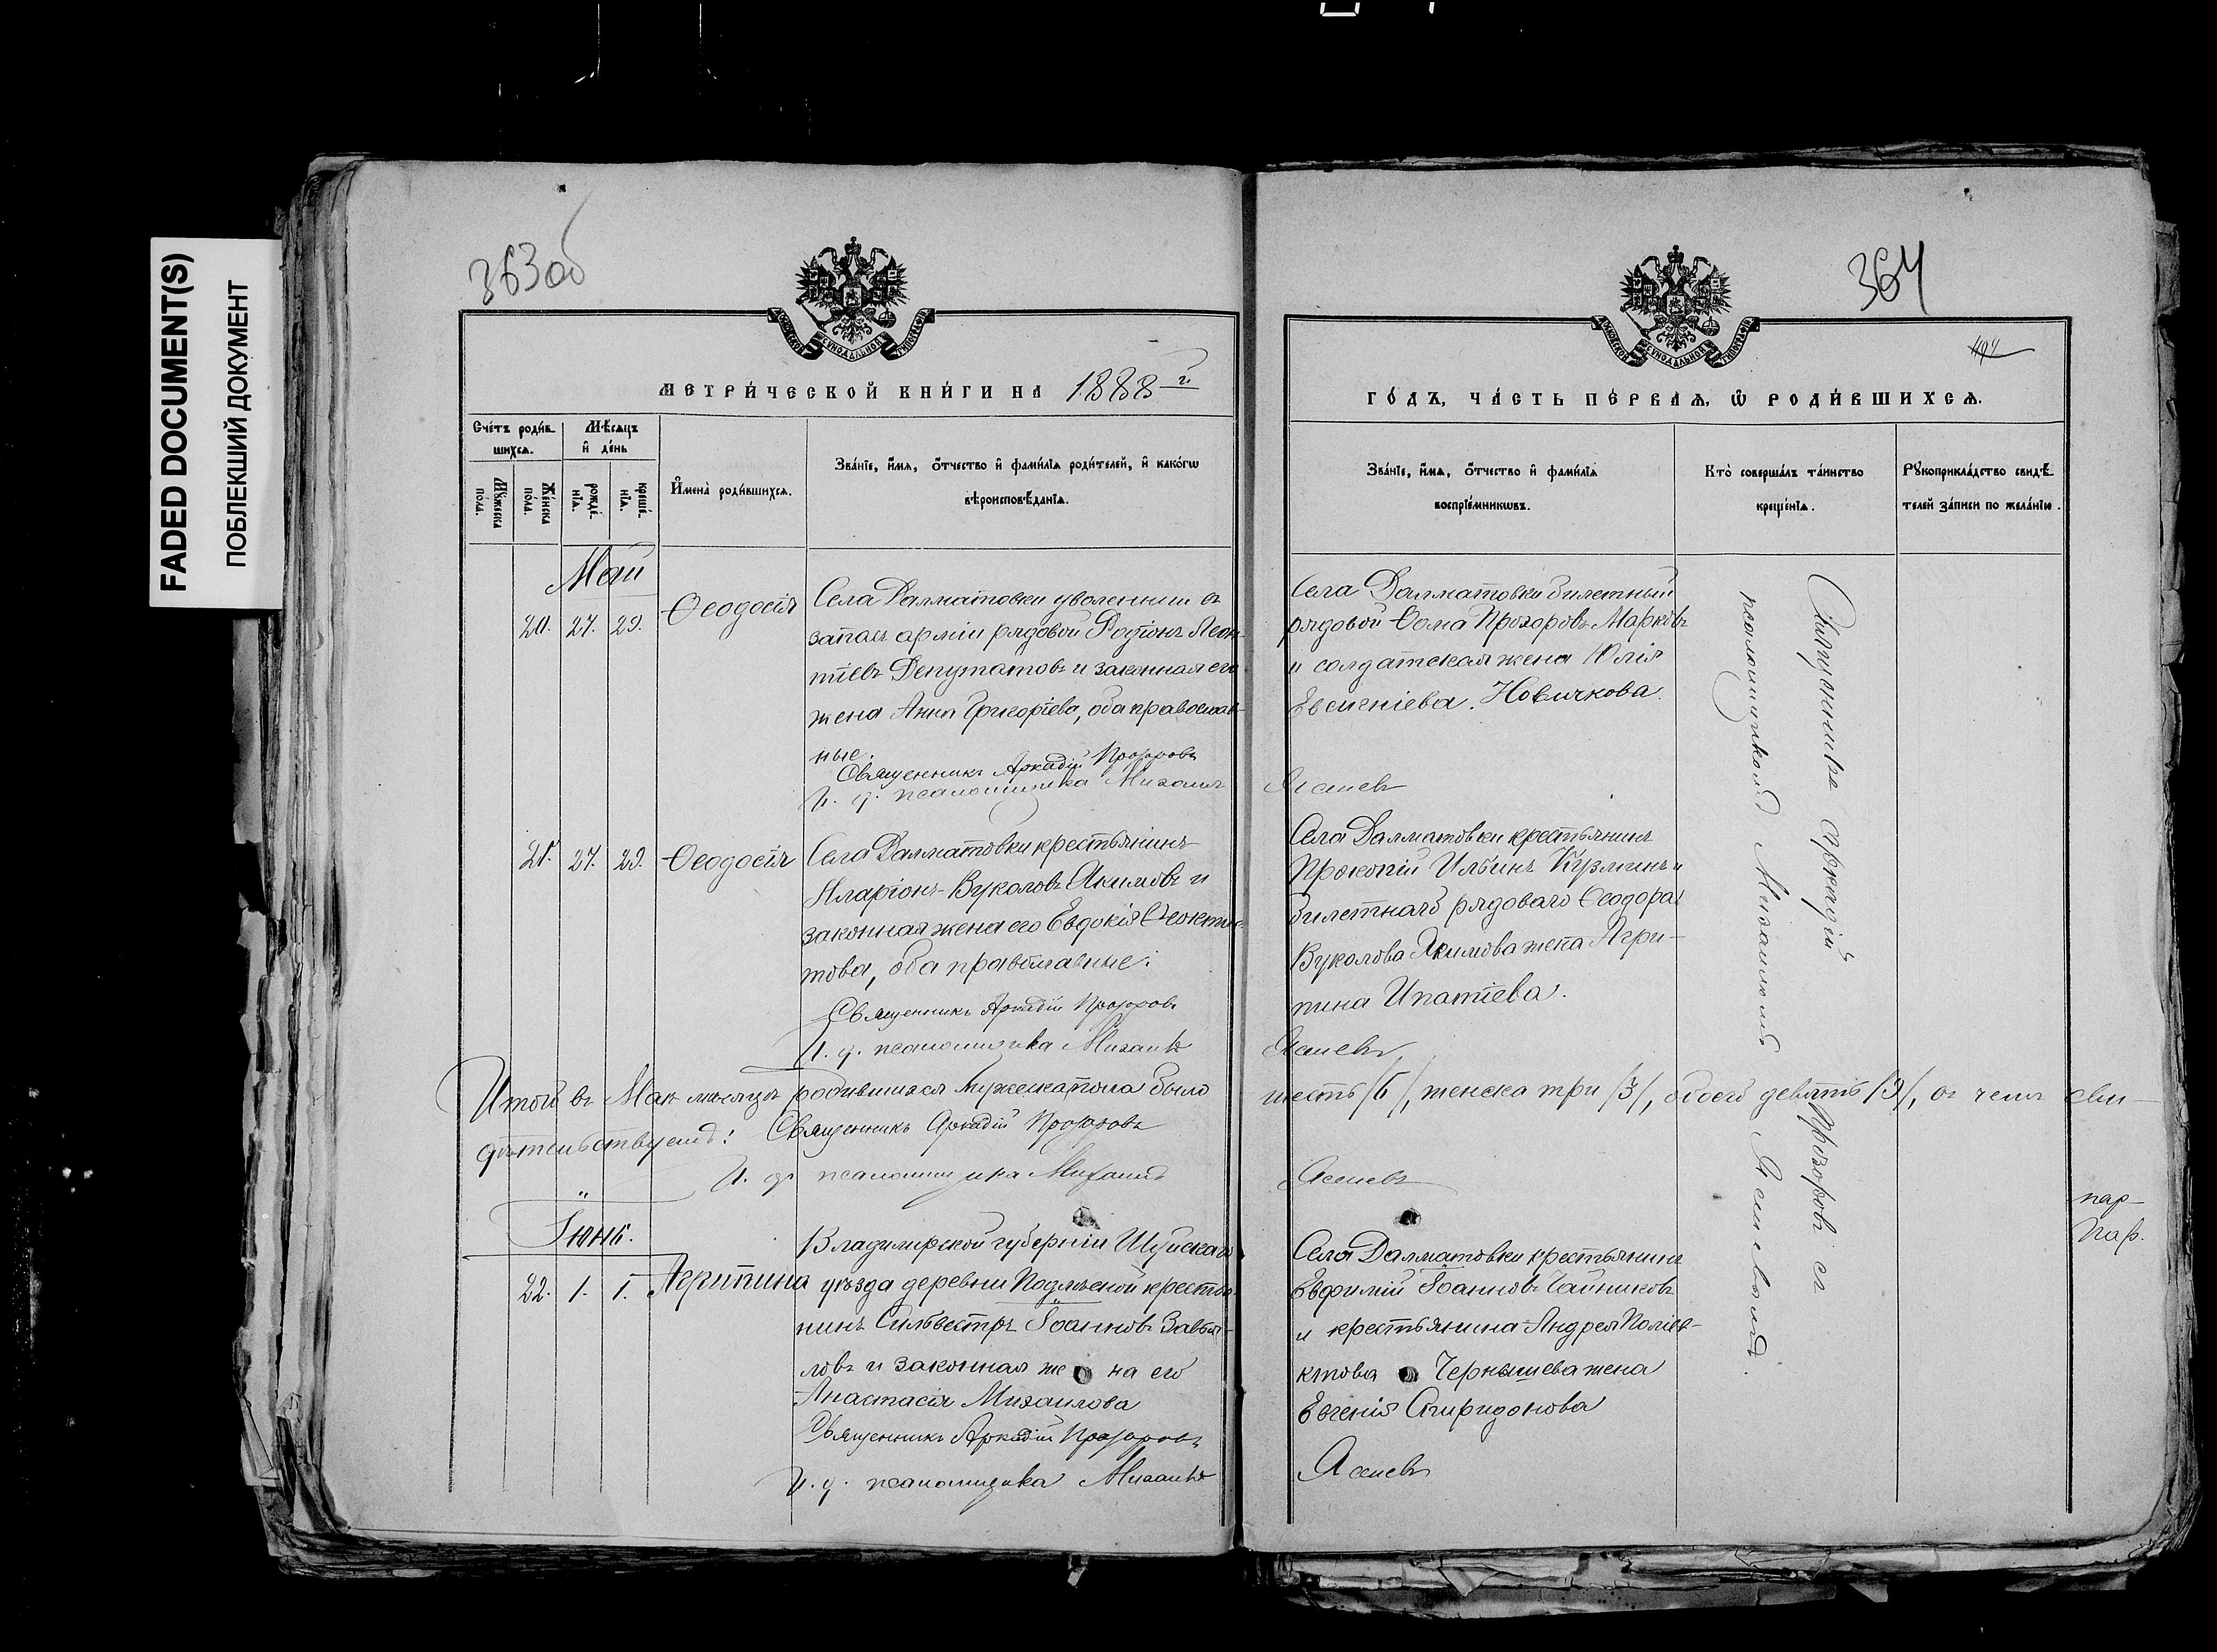 FADED DOCUMENT(S)
ПОБЛЕКШИЙ ДОКУМЕНТ
363об
МЕТРИ́ЧЕСКОЙ КНИ́ГИ НА 1888 г.
Сче́тъ роди́в-
шихся.
Мѣ́сяцъ
и҆ де́нь
Мꙋ́жеска
по́ла.
Же́нска
по́ла.
рожде́-
нїѧ.
креще́-
нїѧ.
И҆мена̀ роди́вшихсѧ.
Зва́нїе, и҆́мѧ, ѻ҆́тчество и҆ фами́лїѧ роди́телей, и҆ како́гѡ
вѣроисповѣ́данїѧ.
Май
20. 27. 29. Ѳеодосія
Села Далматовки уволенный въ
запасъ арміи рядовой Родіонъ Леон-
тіевъ Депутатовъ и законная его
жена Анна Григоріева, оба православ-
ные.
Священникъ Аркадій Прозоровъ
И. д. псаломщика Михаилъ
21. 27. 29. Ѳеодосія
Села Далматовки крестьянинъ
Иларіонъ Вуколовъ Акимовъ и
законная жена его Евдокія Ѳеоктис-
това, оба православные.
Священникъ Аркадій Прозоровъ
И. д. псаломщика Михаилъ
Итого въ Маѣ мѣсяцѣ родившихся мужеска пола было
дѣтельствуемъ: Священникъ Аркадій Прозоровъ
И. д. псаломщика Михаилъ
Іюнь.
22. 1. 1. Агрипина
Владимирской губерніи Шуйскаго
уѣзда деревни крестья-
нинъ Сильвестръ Іоанновъ Завья-
ловъ и законная жена его
Анастасія Михаилова
Священникъ Аркадій Прозоровъ
И. д. псаломщика Михаилъ
364
ГО́ДЪ, ЧА́СТЬ ПЕ́РВАѦ, Ѡ҆ РОДИ́ВШИХСѦ.
Зва́нїе, и҆́мѧ, ѻ҆́тчество и҆ фами́лїѧ
воспрїе́мникѡвъ.
Кто̀ соверша́лъ та́инство
креще́нїѧ.
Рꙋкоприкла́дство свидѣ́-
телей за́писи по жела́нїю.
Села Далматовки билетный
рядовой Ѳома Прохоровъ Марковъ
и солдатская жена Юлія
Евсигніева Новичкова.
Ясневъ
Села Далматовки крестьянинъ
Прокопій Ильинъ Кузминъ и
билетнаго рядоваго Ѳеодора
Вуколова Акимова жена Агри-
пина Ипатіева.
Ясневъ
шесть /6/, женска три /3/, обоего девять /9/, въ чемъ сви-
Ясневъ
Села Далматовки крестьянинъ
Евфимій Іоанновъ Чайниковъ
и крестьянина Андрея Поліев-
ктова Чернышева жена
Евгенія Спиридонова
Ясневъ
Священникъ Аркадій Прозоровъ съ
псаломщикомъ Михаиломъ Ясневымъ.